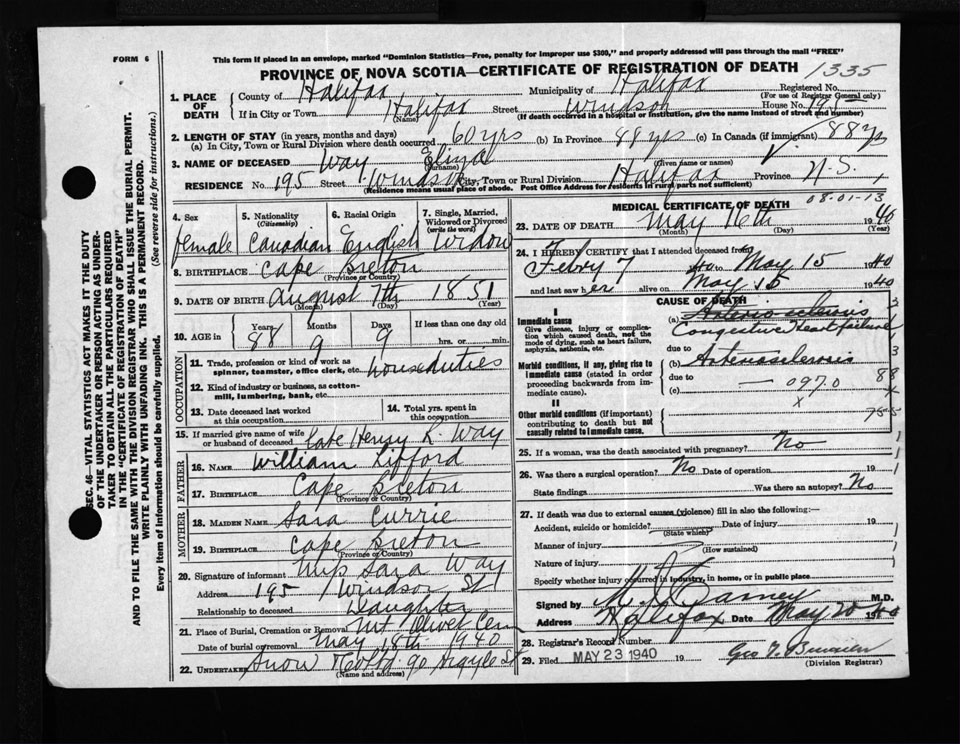 FORM 6
This form if placed in an envelope, marked "Dominion Statistics—Free, penalty for improper use $300," and properly addressed will pass through the mail "FREE"
PROVINCE OF NOVA SCOTIA—CERTIFICATE OF REGISTRATION OF DEATH 1335
SEC. 46—VITAL STATISTICS ACT MAKES IT THE DUTY
OF THE UNDERTAKER OR PERSON ACTING AS UNDER-
TAKER TO OBTAIN ALL THE PARTICULARS REQUIRED
IN THE "CERTIFICATE OF REGISTRATION OF DEATH"
AND TO FILE THE SAME WITH THE DIVISION REGISTRAR WHO SHALL ISSUE THE BURIAL PERMIT.
WRITE PLAINLY WITH UNFADING INK. THIS IS A PERMANENT RECORD.
Every item of Information should be carefully supplied. (See reverse side for instructions.)
1. PLACE OF DEATH
County of Halifax Municipality of Halifax Registered No.
(For use of Registrar General only)
If in City or Town Halifax Street Windsor House No. 195
(Name) (If death occurred in a hospital or institution, give the name instead of street and number)
2. LENGTH OF STAY (in years, months and days)
(a) In City, Town or Rural Division where death occurred 60 yrs (b) In Province 88 yrs (c) In Canada (if immigrant) 88 yrs
3. NAME OF DECEASED Way, Eliza V.
(Surname) (Given name or names)
RESIDENCE No. 195 Street Windsor City, Town or Rural Division Halifax Province N.S.
(Residence means usual place of abode. Post Office Address for residents in rural parts not sufficient)
4. Sex female
5. Nationality (Citizenship) Canadian
6. Racial Origin English
7. Single, Married, Widowed or Divorced (write the word) Widow
8. BIRTHPLACE Cape Breton
(Province or Country)
9. DATE OF BIRTH August 7th 1851
(Month) (Day) (Year)
10. AGE in Years 88 Months 9 Days 9 If less than one day old hrs. or min.
OCCUPATION
11. Trade, profession or kind of work as spinner, teamster, office clerk, etc. houseduties
12. Kind of industry or business, as cotton-mill, lumbering, bank, etc.
13. Date deceased last worked at this occupation
14. Total yrs. spent in this occupation
15. If married give name of wife or husband of deceased late Henry L. Way
FATHER
16. NAME William Lifford
17. BIRTHPLACE Cape Breton
(Province or Country)
MOTHER
18. MAIDEN NAME Sara Currie
19. BIRTHPLACE Cape Breton
(Province or Country)
20. Signature of informant Miss Sara Way
Address 195 Windsor St
Relationship to deceased Daughter
21. Place of Burial, Cremation or Removal Mt Olivet Cem
Date of burial or removal May 18th 1940
22. UNDERTAKER Snow & Co Ltd. 90 Argyle St
(Name and address)
MEDICAL CERTIFICATE OF DEATH 08-01-13
23. DATE OF DEATH May 16th 1940
(Month) (Day) (Year)
24. I HEREBY CERTIFY that I attended deceased from
Febry 7 40 to May 15 1940
and last saw her alive on May 15 1940
CAUSE OF DEATH
I
Immediate cause
Give disease, injury or complication which caused death, not the mode of dying, such as heart failure, asphyxia, asthenia, etc.
(a) Arterio sclerosis
Congestive Heart failure
due to
Morbid conditions, if any, giving rise to Immediate cause (stated in order proceeding backwards from immediate cause).
(b) Arteriosclerosis
due to
(c) — 097.0
x
88
755
II
Other morbid conditions (if important) contributing to death but not causally related to Immediate cause.
25. If a woman, was the death associated with pregnancy? No
26. Was there a surgical operation? No Date of operation 19
State findings Was there an autopsy? No
27. If death was due to external causes (violence) fill in also the following:—
Accident, suicide or homicide? Date of injury 19
(State which)
Manner of injury
(How sustained)
Nature of injury
Specify whether injury occurred in industry, in home, or in public place
Signed by M.D.
Address Halifax Date May 20 1940
28. Registrar's Record Number
29. Filed MAY 23 1940 19
(Division Registrar)